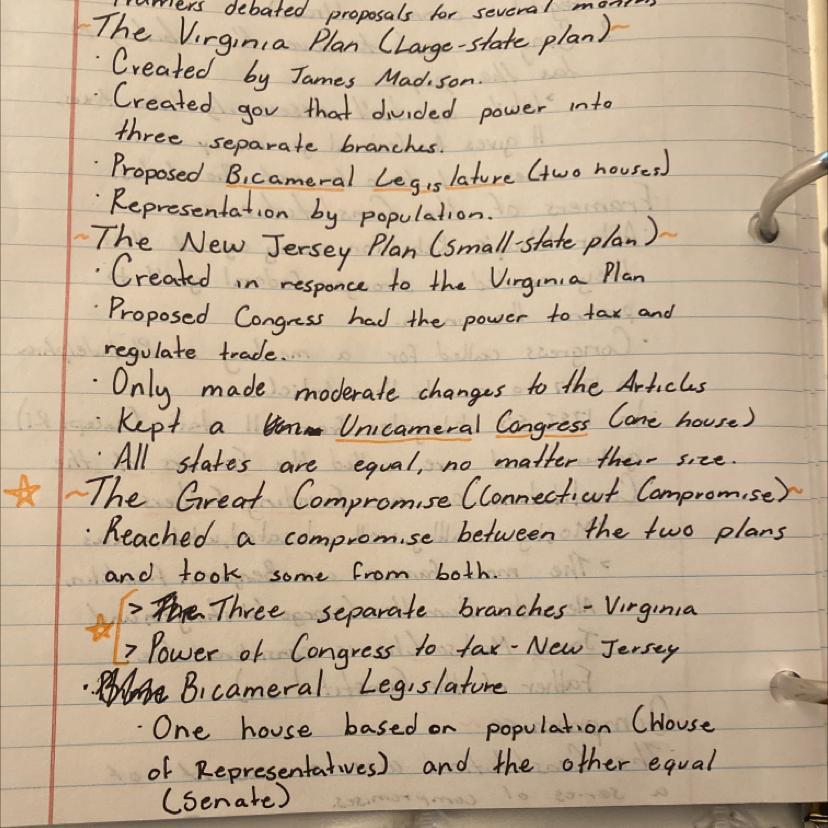 Framers debated proposals for several months
~The Virginia Plan (Large-state plan)~
· Created by James Madison.
· Created gov that divided power into
three separate branches.
· Proposed Bicameral Legislature (two houses)
· Representation by population.
~The New Jersey Plan (small-state plan)~
· Created in responce to the Virginia Plan
· Proposed Congress had the power to tax and
regulate trade.
· Only made moderate changes to the Articles
· Kept a Unicameral Congress (one house)
· All states are equal, no matter their size.
~The Great Compromise (Connecticut Compromise)~
· Reached a compromise between the two plans
and took some from both.
> Three separate branches - Virginia
> Power of Congress to tax - New Jersey
· Bicameral Legislature
· One house based on population (House
of Representatives) and the other equal
(Senate)